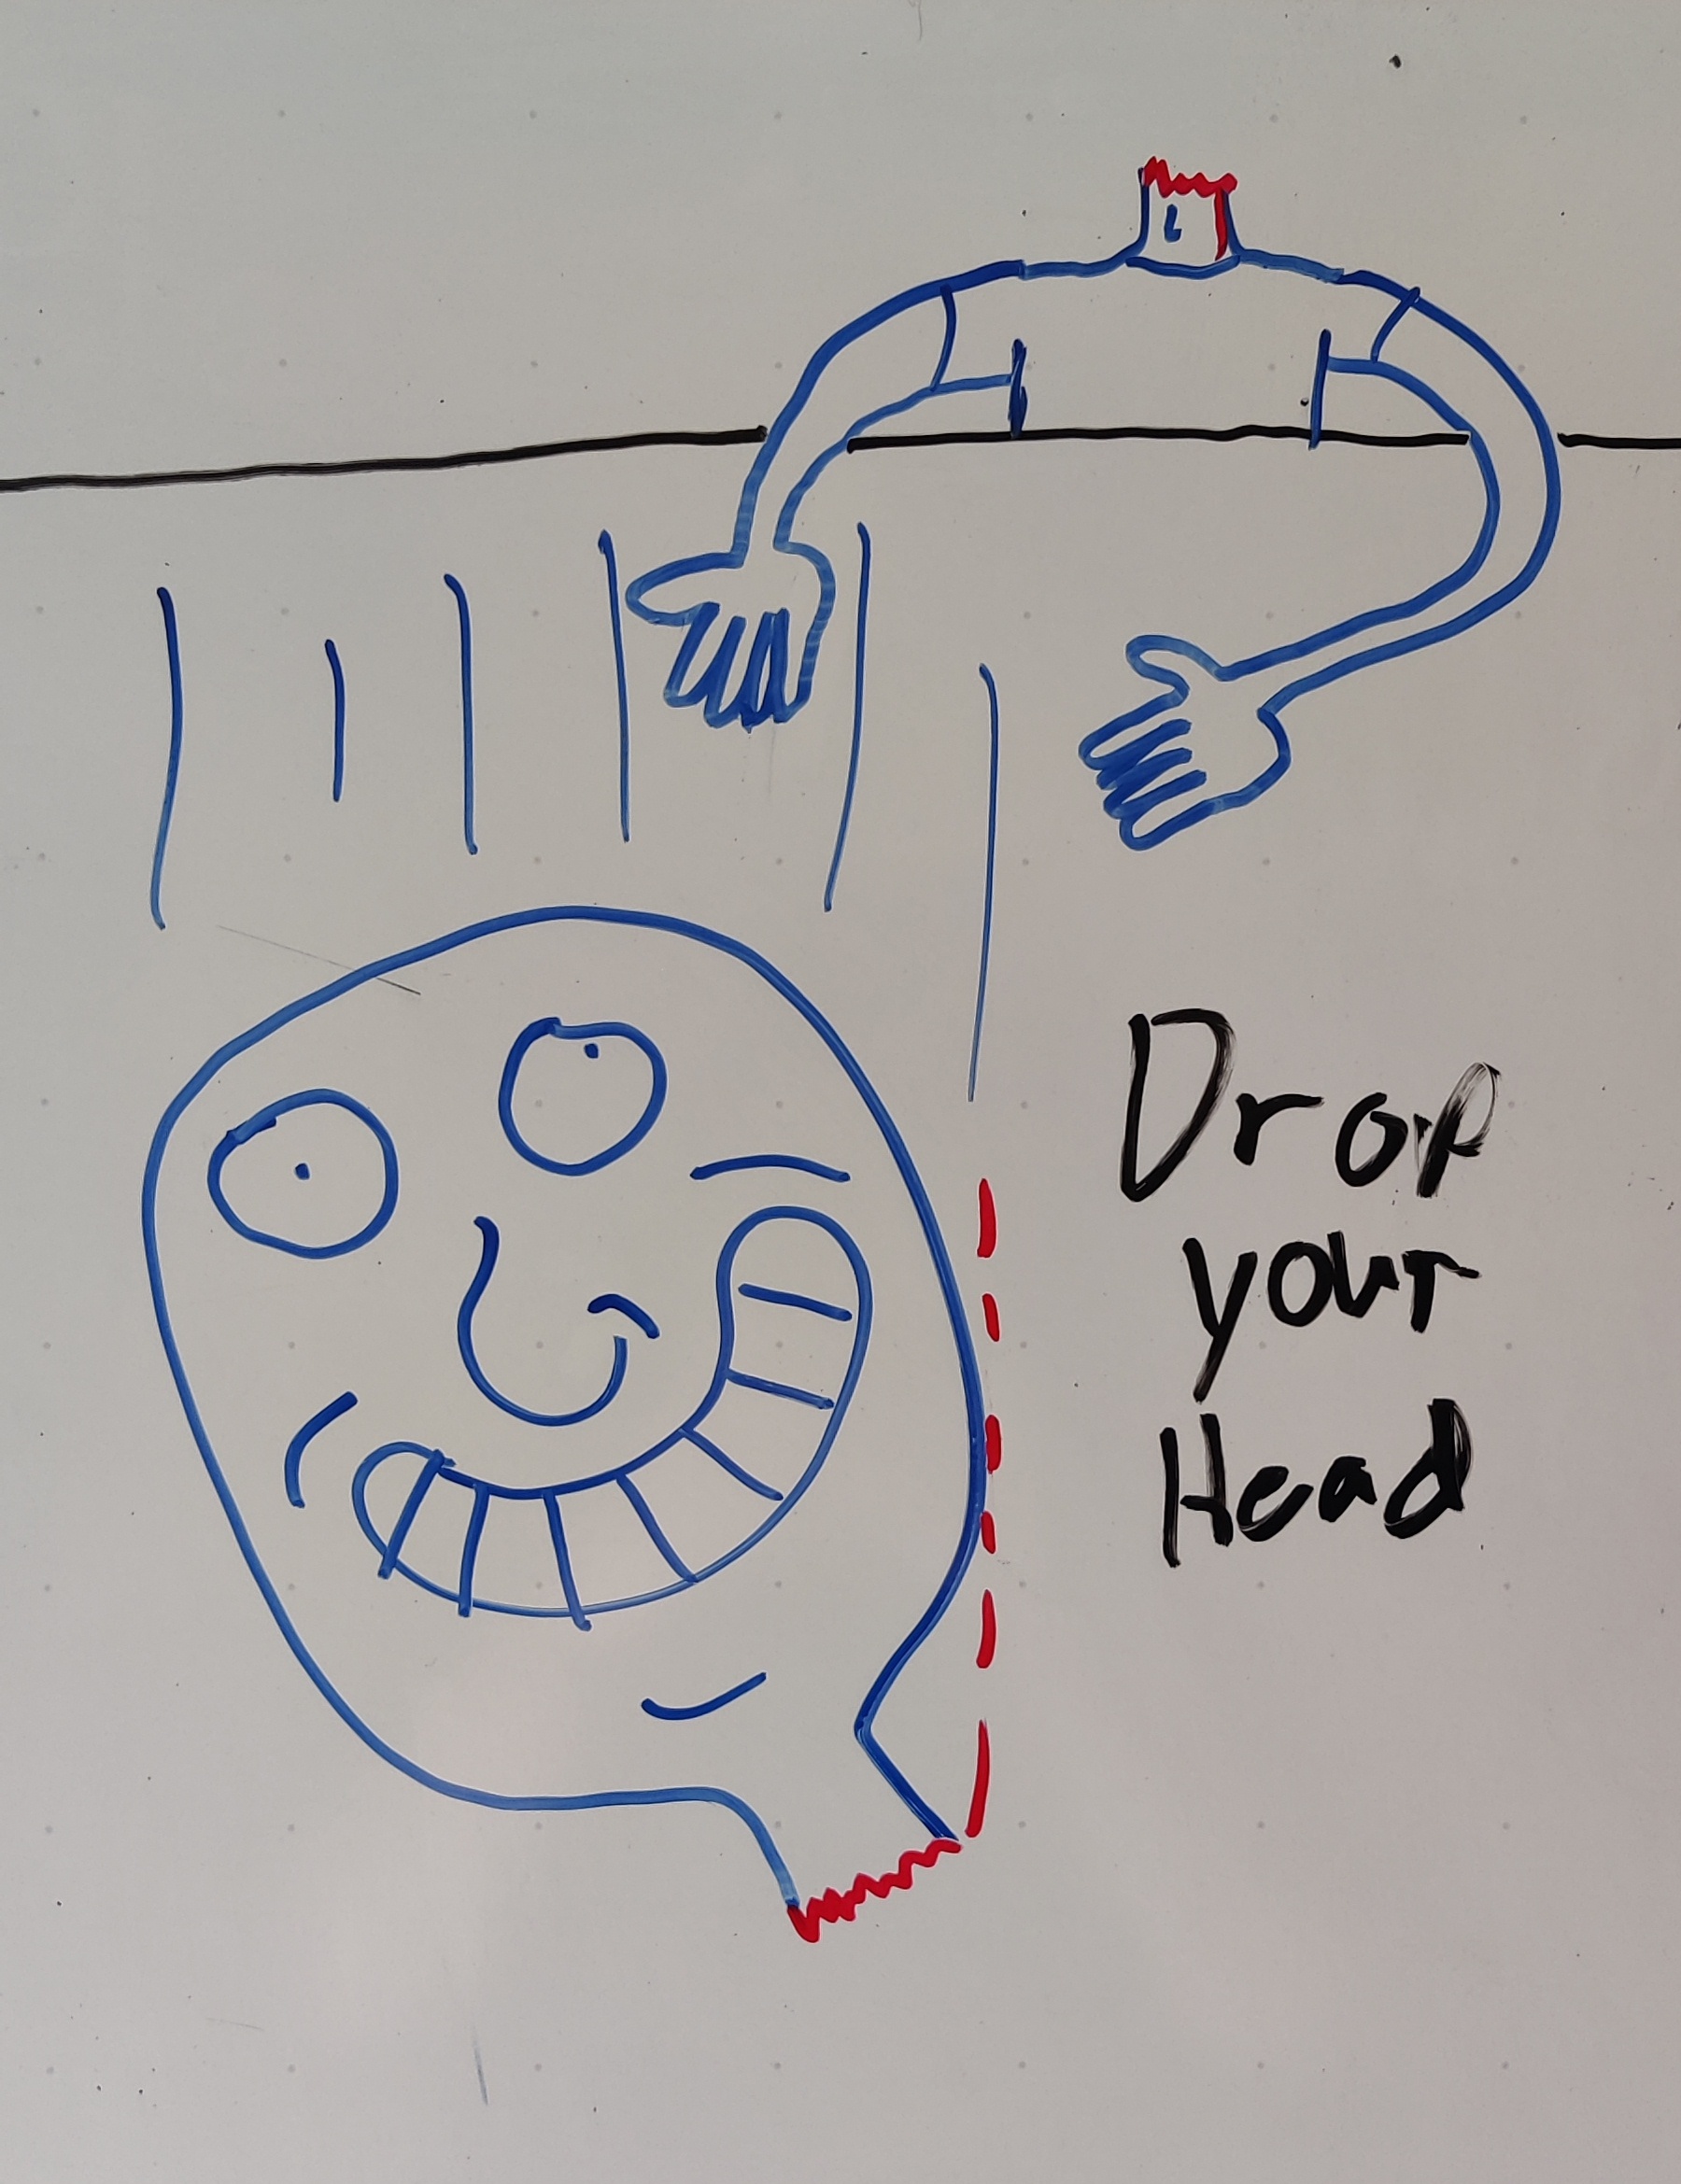 Drop
your
Head